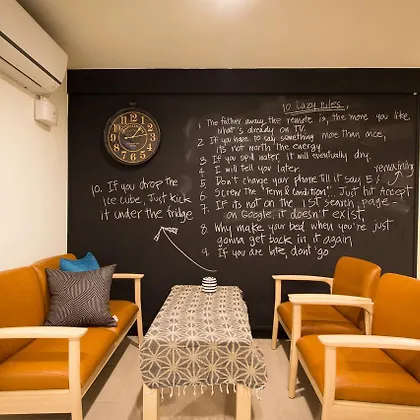 10 Lazy rules,
1 The father away, the remote is, the more you like
what's already on TV.
2 If you have to say something more than once,
its not worth the energy.
3 If you spill water it will eventually dry.
4 I will tell you later.
5 Don't change your phone till it say 5%
remaining
6 Screw the "Term & Condition". Just hit Accept
7 If its not on the 1st search page-
on Google, it doesn't exist.
8 Why make your bed when you're just
gonna get back in it again
9 If you are late, dont' go
10. If you drop the
ice cube, Just kick
it under the fridge